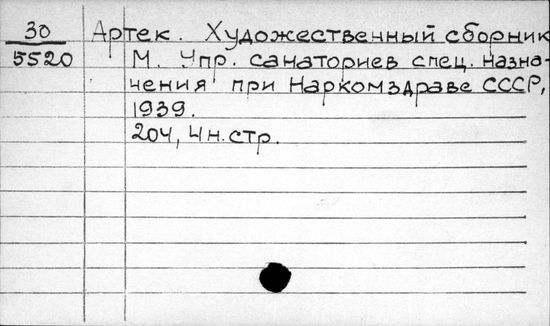 30 Артек. Художественный сборник
5520 М. Упр. санаториев спец. назна-
чения при Наркомздраве СССР,
1939.
204, 4н.стр.